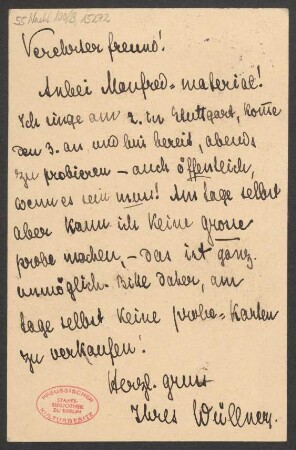 55 Nachl 100/B, 15272
Verehrter Freund!
Anbei Manfred-material!
Ich singe am 2. in Stuttgart, komme
den 3. an und bin bereit, abends
zu probieren – auch öffentlich,
wenn es sein muss! Am Tage selbst
aber kann ich keine grosse
probe machen, – das ist ganz
unmöglich. Bitte daher, am
tage selbst keine probe-Karten
zu verkaufen!
Herzl. gruss
Ihres Wüllner.
PREUSSISCHER
STAATS-
BIBLIOTHEK
ZU BERLIN
KULTURBESITZ